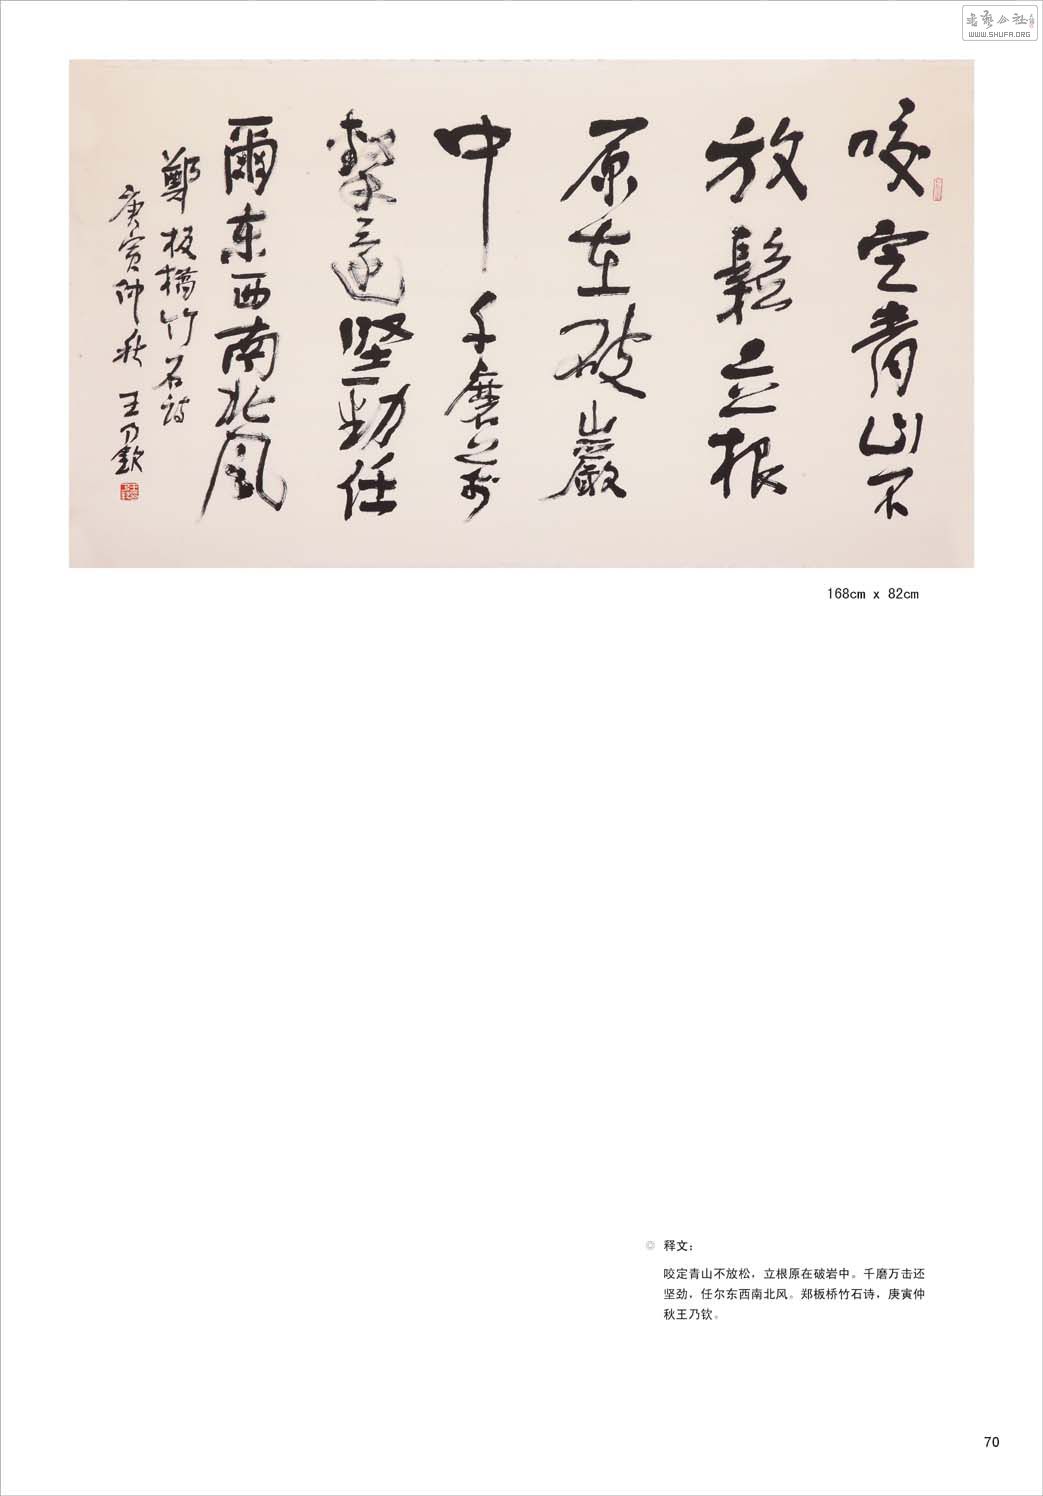 WWW.SHUFA.ORG
咬定青山不
放鬆立根
原在破巖
中千磨萬
擊還坚勁任
爾东西南北風
鄭板橋竹石詩
庚寅仲秋王乃欽
168cm x 82cm
释文：
咬定青山不放松，立根原在破岩中。千磨万击还
坚劲，任尔东西南北风。郑板桥竹石诗，庚寅仲
秋王乃钦。
70